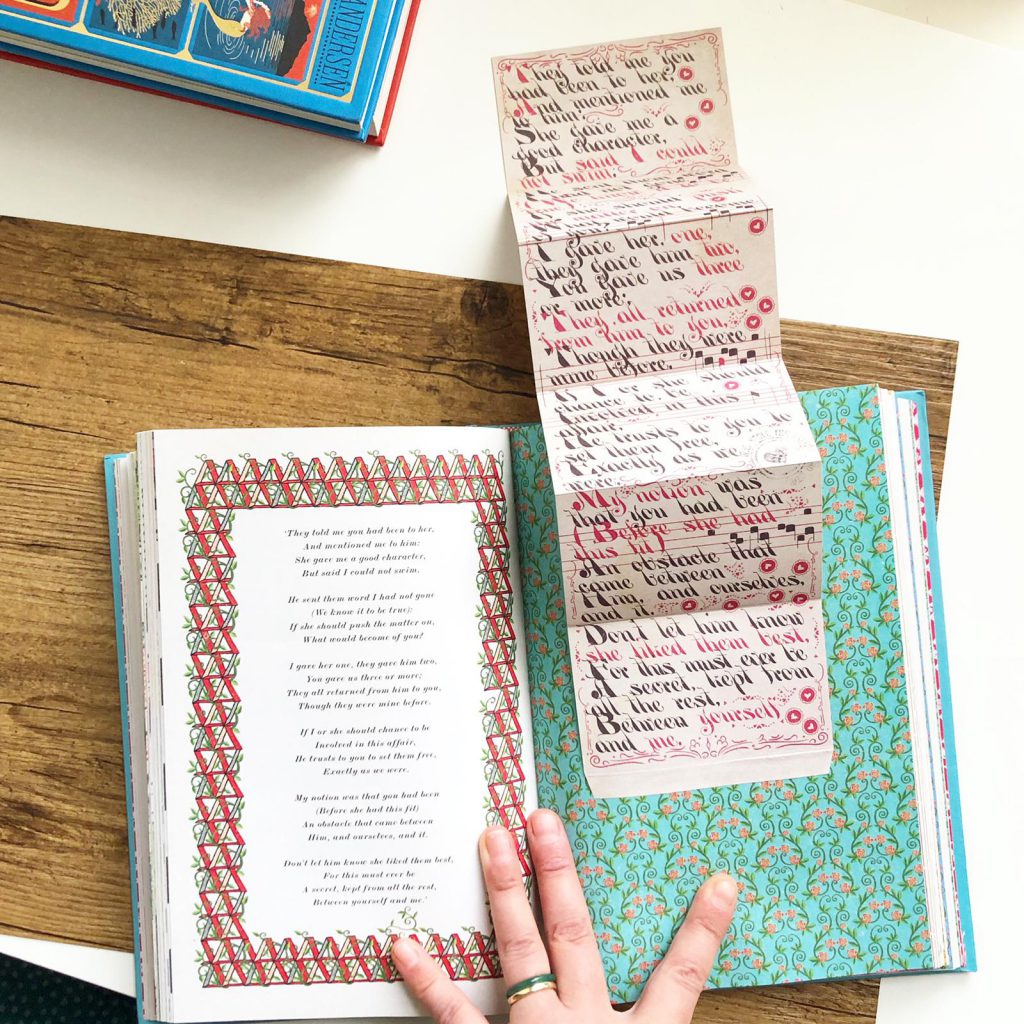 ANDERSEN
They told me you
had been to her,
And mentioned me
to him:
She gave me a
good character,
But said I could
not swim.
she should
I gave her one,
they gave him two,
You gave us three
or more;
They all returned
from him to you,
Though they were
mine before.
If I or she should
chance to be
Involved in this
affair,
He trusts to you to
set them free,
Exactly as we
were.
My notion was
that you had been
(Before she had
this fit)
An obstacle that
came between
Him, and ourselves,
and it.
Don't let him know
she liked them best,
For this must ever be
A secret, kept from
all the rest,
Between yourself
and me.
'They told me you had been to her,
And mentioned me to him:
She gave me a good character,
But said I could not swim.
He sent them word I had not gone
(We know it to be true):
If she should push the matter on,
What would become of you?
I gave her one, they gave him two,
You gave us three or more;
They all returned from him to you,
Though they were mine before.
If I or she should chance to be
Involved in this affair,
He trusts to you to set them free,
Exactly as we were.
My notion was that you had been
(Before she had this fit)
An obstacle that came between
Him, and ourselves, and it.
Don't let him know she liked them best,
For this must ever be
A secret, kept from all the rest,
Between yourself and me.'